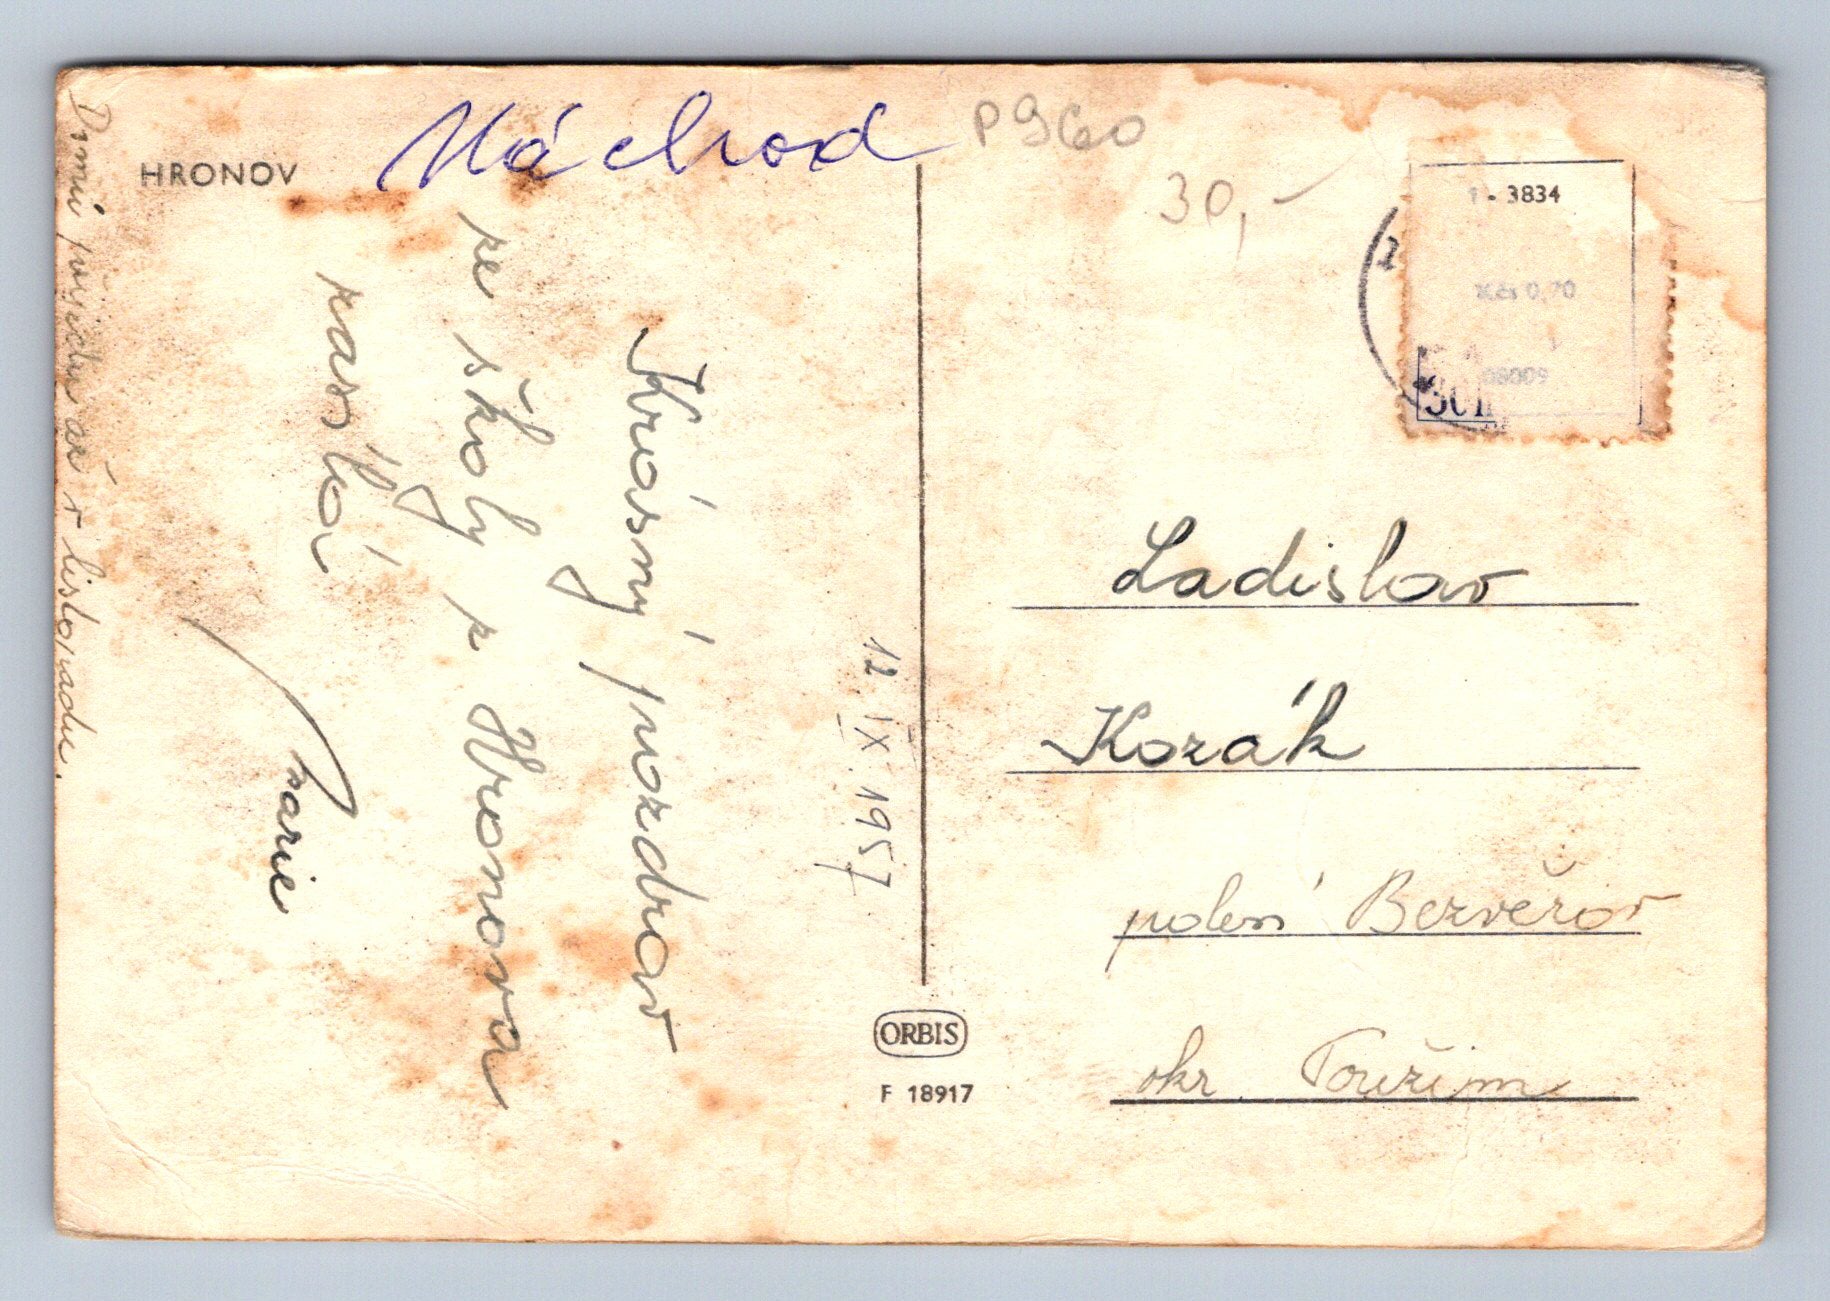 HRONOV
Náchod
P960
30,-
1-3834
Kčs 0,70
08009
12. IX. 1957
Krásný pozdrav
ze školy z Hronova
zasílá
Marie
Domů přijedu až v listopadu.
Ladislav
Kozák
polesí Bezvěrov
okr. Toužim
ORBIS
F 18917